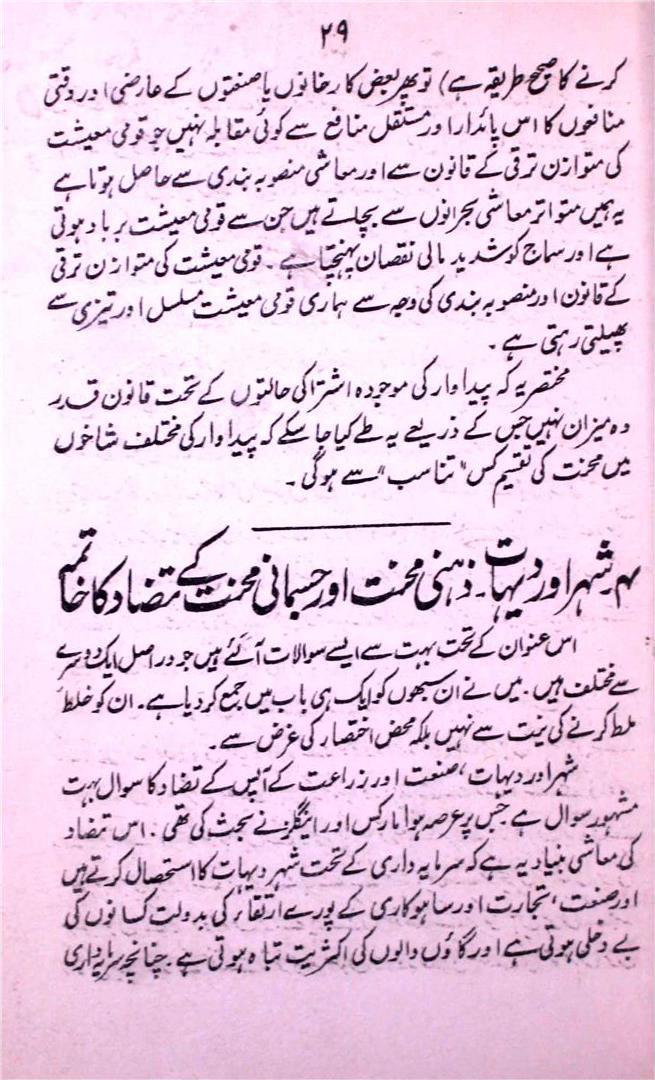 ۲۹
کرنے کا صحیح طریقہ ہے) تو پھر بعض کارخانوں یا صنعتوں کے عارضی اور وقتی
منافعوں کا اس پائدار اور مستقل منافع سے کوئی مقابلہ نہیں جو قومی معیشت
کی متوازن ترقی کے قانون سے اور معاشی منصوبہ بندی سے حاصل ہوتا ہے
یہ ہمیں متواتر معاشی بحرانوں سے بچاتے ہیں جن سے قومی معیشت برباد ہوتی
ہے اور سماج کو شدید مالی نقصان پہنچتا ہے۔ قومی معیشت کی متوازن ترقی
کے قانون اور منصوبہ بندی کی وجہ سے ہماری قومی معیشت مسلسل اور تیزی سے
پھیلتی رہتی ہے۔
مختصر یہ کہ پیداوار کی موجودہ اشتراکی حالتوں کے تحت قانون قدر
وہ میزان نہیں جس کے ذریعے یہ طے کیا جا سکے کہ پیداوار کی مختلف شاخوں
میں محنت کی تقسیم کس "تناسب" سے ہوگی۔
۴۔ شہر اور دیہات۔ ذہنی محنت اور جسمانی محنت کے تضاد کا خاتمہ
اس عنوان کے تحت بہت سے ایسے سوالات آگئے ہیں جو دراصل ایک دوسرے
سے مختلف ہیں۔ میں نے ان سبھوں کو ایک ہی باب میں جمع کر دیا ہے۔ ان کو خلط
ملط کرنے کی نیت سے نہیں بلکہ محض اختصار کی غرض سے۔
شہر اور دیہات، صنعت اور زراعت کے آپس کے تضاد کا سوال بہت
مشہور سوال ہے جس پر عرصہ ہوا مارکس اور اینگلز نے بحث کی تھی۔ اس تضاد
کی معاشی بنیاد یہ ہے کہ سرمایہ داری کے تحت شہر دیہات کا استحصال کرتے ہیں
اور صنعت، تجارت اور ساہوکاری کے پورے ارتقاء کی بدولت کسانوں کی
بے دخلی ہوتی ہے اور گاؤں والوں کی اکثریت تباہ ہوتی ہے۔ چنانچہ سرمایہ داری